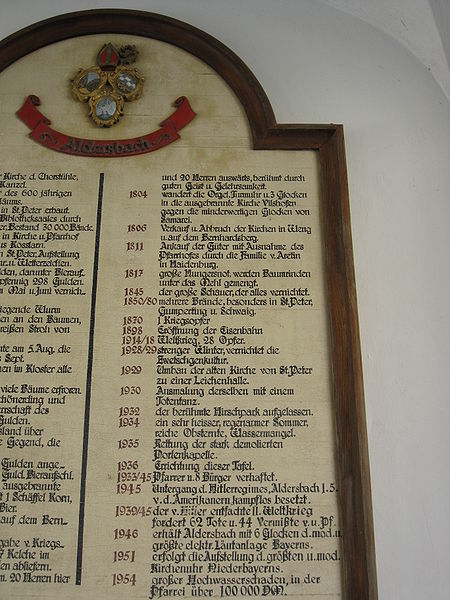 Aldersbach
r Kirche d. Chorstühle,
Kanzel.
des 600 jährigen
äums.
in St. Peter erbaut.
Bibliotheksaales durch
er. Bestand 30 000 Bände.
in Kirche u. Pfarrhof
us Kosstarn.
n St. Peter, Aufstellung
n. u. Wetterzeichen.
lden, darunter Bierauf.
pfennig 298 Gulden.
Mai u. Juni vernich.
iegende Wurm
en an den Bäumen,
reißen Stroh von
nte am 5. Aug. die
Sept.
en im Kloster alle
viele Bäume erfroren.
schönerung und
rrschaft des
ulden.
sland über
e Gegend, die
Gulden ange
Guld. Bieraufschl.
ausgebrannte
t 1 Schäffel Korn,
Bier.
auf dem Bern
gabe v. Kriegs
7 Kelche im
en abliefern.
m. 20 Herren hier
und 20 Herren auswärts, berühmt durch
guten Geist u. Gelehrsamkeit.
1804 wandert die Orgel, Turmuhr u. 3 Glocken
in die ausgebrannte Kirche Vilshofen
gegen die minderwertigen Glocken von
Samarei.
1806 Verkauf u. Abbruch der Kirchen in Weng
u. auf dem Bernhardsberg.
1811 Ankauf der Güter mit Ausnahme des
Pfarrhofes durch die Familie v. Aretin
in Haidenburg.
1817 große Hungersnot, werden Baumrinden
unter das Mehl gemengt.
1845 der große Schauer, der alles vernichtet.
1850/80 mehrere Brände, besonders in St. Peter,
Gumperting u. Schwaig.
1870 1 Kriegsopfer
1898 Eröffnung der Eisenbahn
1914/18 Weltkrieg, 28 Opfer.
1928/29 strenger Winter, vernichtet die
Zwetschgenkultur.
1929 Umbau der alten Kirche von St. Peter
zu einer Leichenhalle.
1930 Ausmalung derselben mit einem
Totentanz.
1932 der berühmte Hirschpark aufgelassen.
1934 ein sehr heisser, regenarmer Sommer,
reiche Obsternte, Wassermangel.
1935 Rettung der stark demolierten
Portenkapelle.
1936 Errichtung dieser Tafel.
1933/45 Pfarrer u. 8 Bürger verhaftet.
1945 Untergang d. Hitlerregimes, Aldersbach 1. 5.
v. d. Amerikanern kampflos besetzt.
1939/45 der v. Hitler entfachte II. Weltkrieg
fordert 62 Tote u. 44 Vermißte v. u. Pf.
1946 erhält Aldersbach mit 6 Glocken d. mod. u.
größte elektr. Läutanlage Bayerns.
1951 erfolgt die Aufstellung d. größten u. mod.
Kirchenuhr Niederbayerns.
1954 großer Hochwasserschaden, in der
Pfarrei über 100 000 DM.